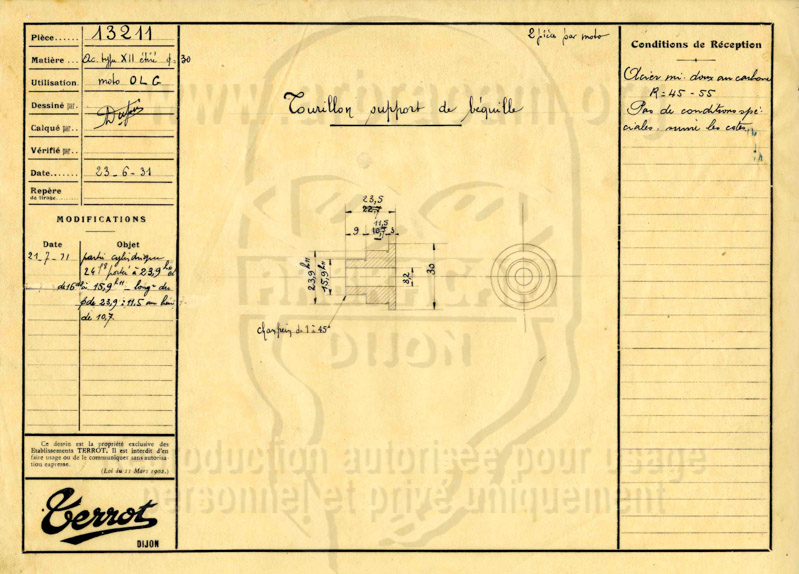 Pièce...... 13211
Matière... Ac. type XII étiré φ. 30
Utilisation. moto OLG
Dessiné par..
Calqué par..
Vérifié par..
Date....... 23-6-31
Repère
de tirage.........
MODIFICATIONS
Date Objet
21-7-71 partie cylindrique
portée à 23,9 h11
à 15,9 h11 - longr du
φ de 23,9 : 11.5 au lieu
de 10,7.
Ce dessin est la propriété exclusive des
Etablissements TERROT. Il est interdit d'en
faire usage ou de le communiquer sans autorisa-
tion expresse.
(Loi du 11 Mars 1902.)
Terrot
DIJON
2 pièces par moto
Tourillon support de béquille
23,5
22,7
11,5
9 10,7 3
23,9 h11
15,9 h11
8,2
30
chanfrein de 1 à 45°
Conditions de Réception
Acier mi-doux au carbone
R = 45 - 55
Pas de conditions spé-
ciales, suivre les cotes
DIJON
Reproduction autorisée pour usage
personnel et privé uniquement